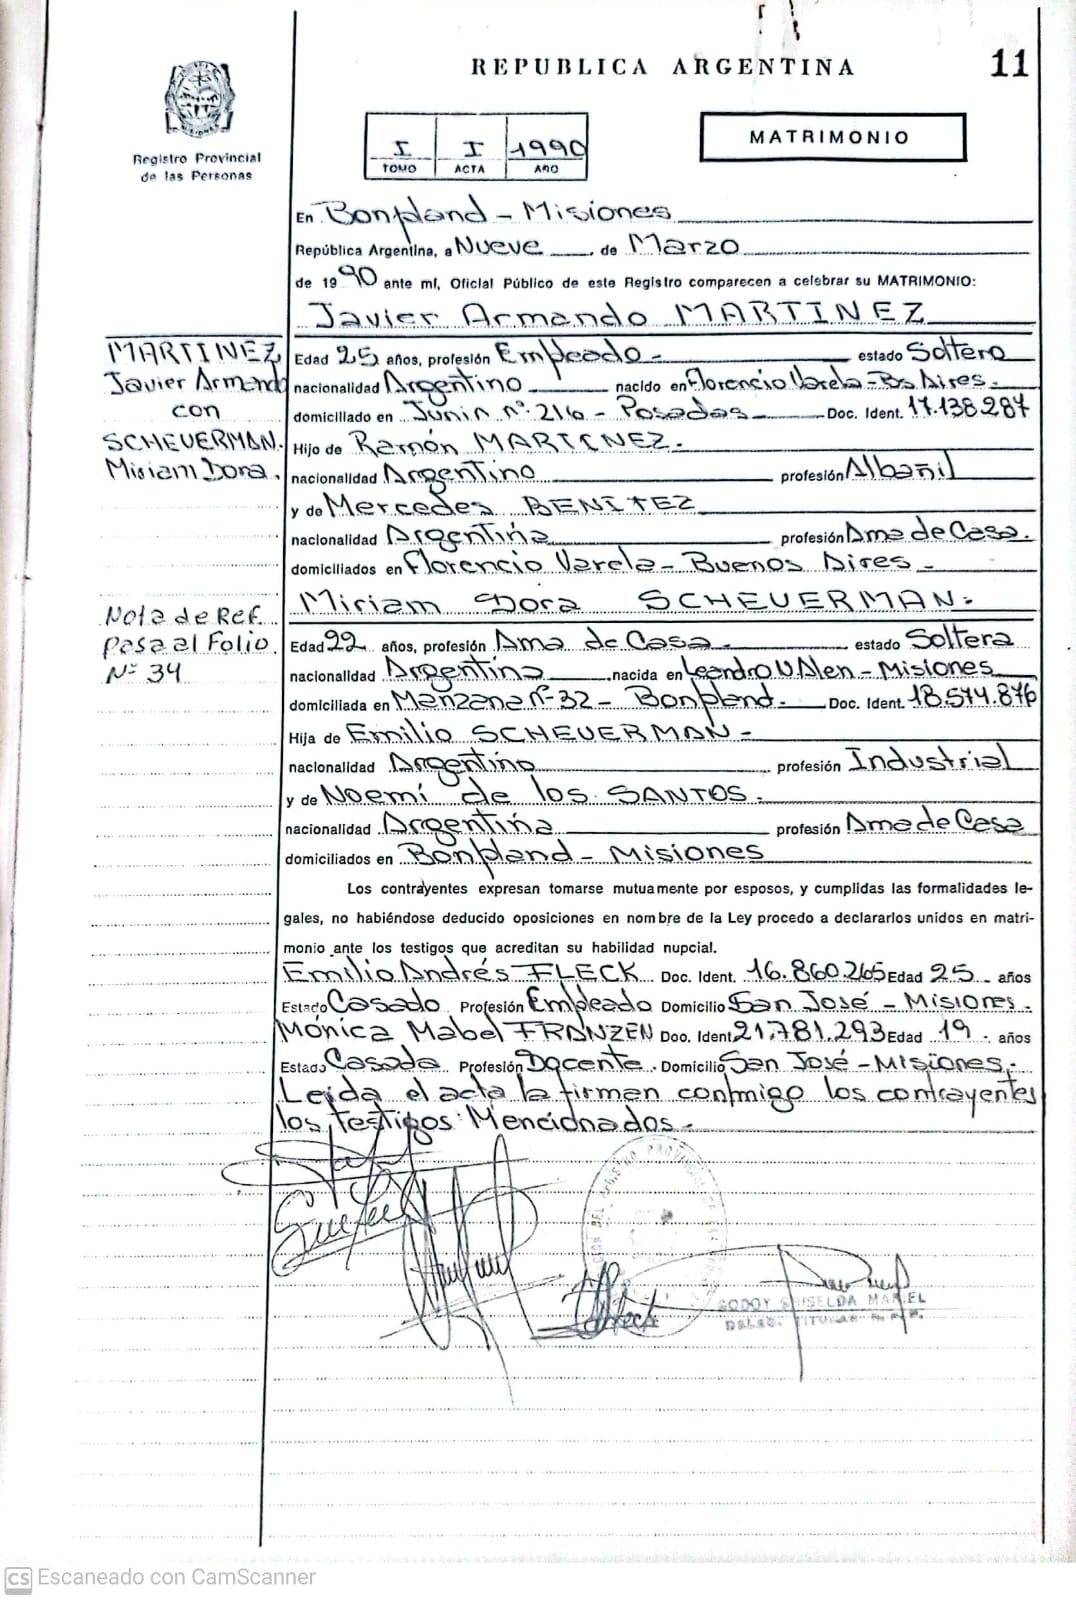 REPUBLICA ARGENTINA
11
Registro Provincial
de las Personas
I I 1990
TOMO ACTA AÑO
MATRIMONIO
En Bonpland - Misiones
República Argentina, a Nueve de Marzo
de 1990 ante mí, Oficial Público de este Registro comparecen a celebrar su MATRIMONIO:
Javier Armando MARTINEZ
MARTINEZ
Javier Armando
con
SCHEUERMAN.
Miriam Dora.
Edad 25 años, profesión Empleado - estado Soltero
nacionalidad Argentino nacido en Florencio Varela - Bs Aires.
domiciliado en Junin nº 216 - Posadas Doc. Ident. 17.138.287
Hijo de Ramón MARTINEZ.
nacionalidad Argentino profesión Albañil
y de Mercedes BENITEZ
nacionalidad Argentina profesión Ama de Casa.
domiciliados en Florencio Varela - Buenos Aires -
Miriam Dora SCHEUERMAN.
Nota de Ref.
pasa al Folio
Nº 34
Edad 22 años, profesión Ama de Casa estado Soltera
nacionalidad Argentina nacida en Leandro N Alen - Misiones
domiciliada en Manzana nº 32 - Bonpland - Doc. Ident. 18.574.876
Hija de Emilio SCHEUERMAN -
nacionalidad Argentino profesión Industrial
y de Noemí de los SANTOS.
nacionalidad Argentina profesión Ama de Casa
domiciliados en Bonpland - Misiones
Los contrayentes expresan tomarse mutuamente por esposos, y cumplidas las formalidades le-
gales, no habiéndose deducido oposiciones en nombre de la Ley procedo a declararlos unidos en matri-
monio ante los testigos que acreditan su habilidad nupcial.
Emilio Andrés FLECK Doc. Ident. 16.860.265 Edad 25 años
Estado Casado Profesión Empleado Domicilio San José - Misiones.
Mónica Mabel FRANZEN Doc. Ident 21.781.293 Edad 19 años
Estado Casada Profesión Docente. Domicilio San José - Misiones.
Leida el acta la firman conmigo los contrayentes
los testigos Mencionados -
GODOY GRISELDA MARIEL
DELEG. TITULAR R.P.P.
CS Escaneado con CamScanner